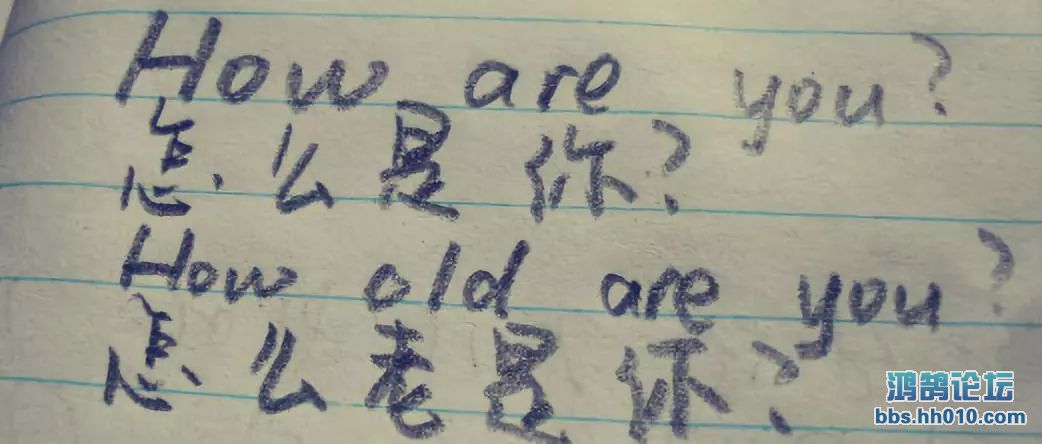 How are you?
怎么是你?
How old are you?
怎么老是你?
鸿鹄论坛
bbs.hh010.com